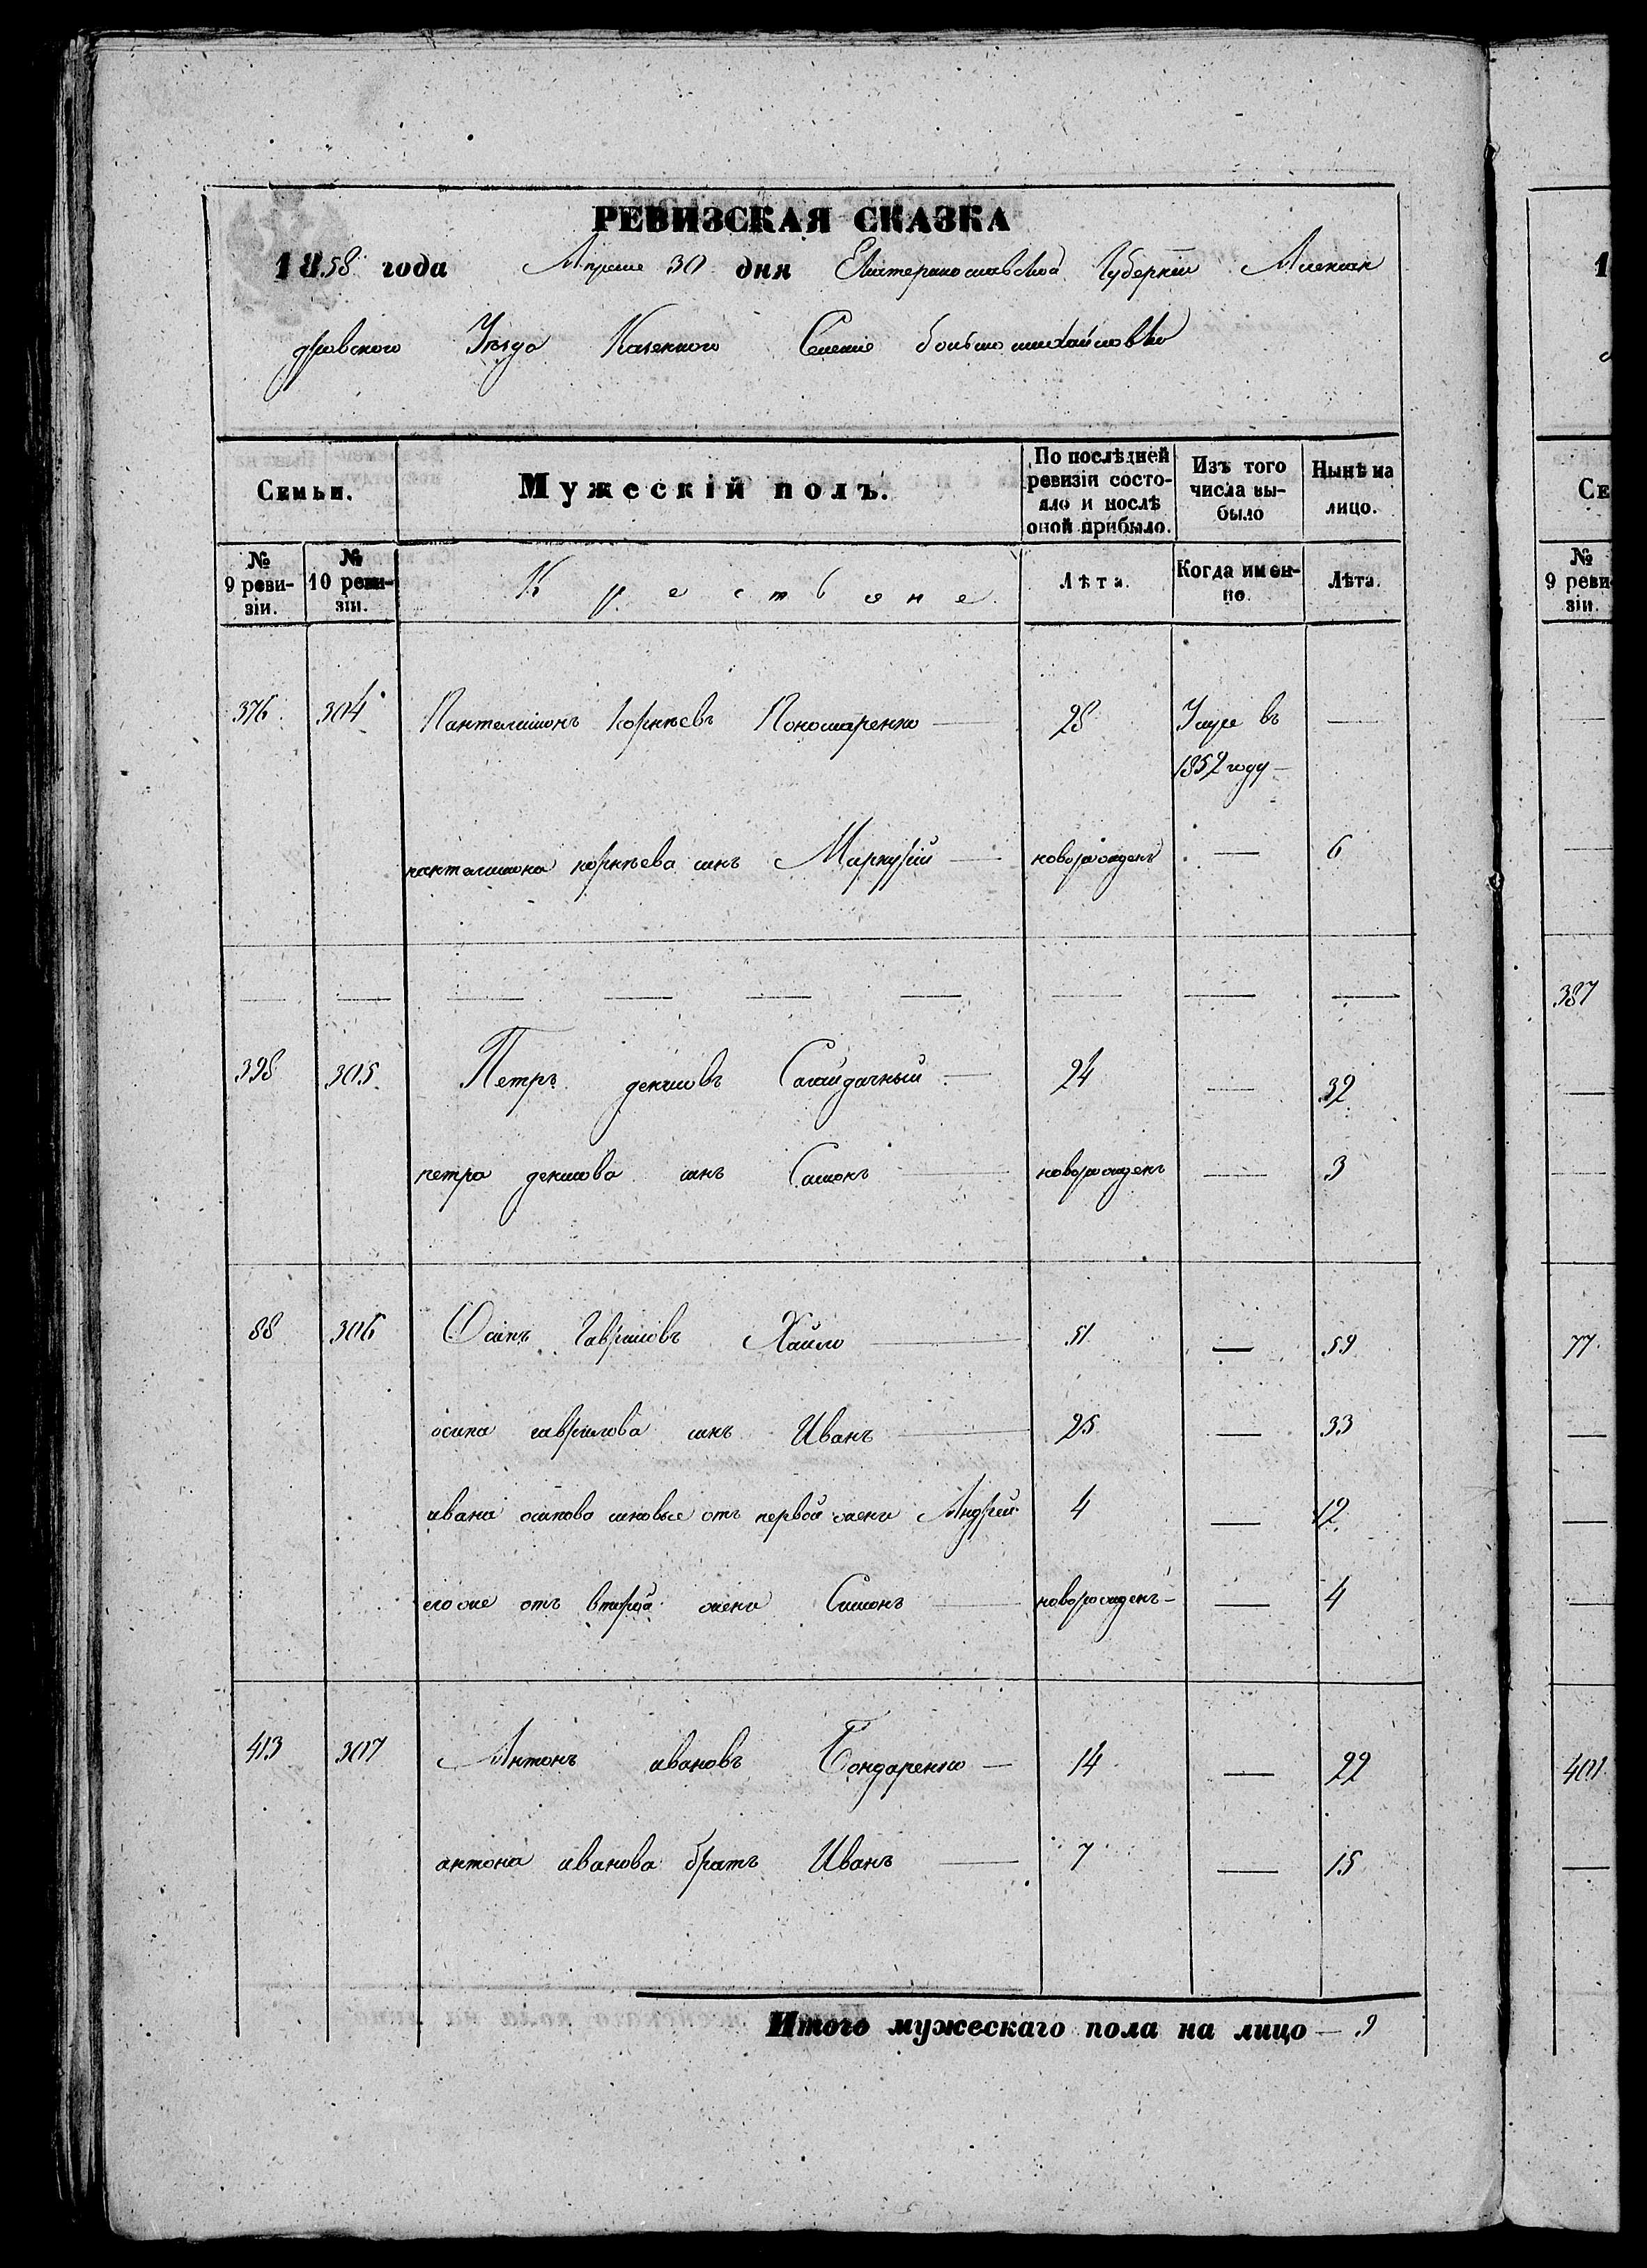 РЕВИЗСКАЯ СКАЗКА
1858 года Апреле 30 дня Екатеринославской Губернии Алексан
дровского Уезда Казенного Селение большомихайловки
Семьи. Мужескій полъ. По послѣдней ревизіи состояло и послѣ оной прибыло. Изъ того числа выбыло Нынѣ на лицо.
№ 9 ревизіи. № 10 ревизіи. Крестьяне. Лѣта. Когда именно. Лѣта.
376 304 Пантелимонъ Корнѣевъ Пономаренко — 28 Умре въ —
1852 году —
пантелимона корнѣева сынъ Меркурій — новорожденъ — 6
398 305 Петръ денисовъ Сагайдачный — 24 — 32
петра денисова сынъ Симонъ — новорожденъ — 3
88 306 Осипъ Гавриловъ Хайло — 51 — 59
осипа гаврилова сынъ Иванъ — 25 — 33
ивана осипова сыновье отъ первой жени Андрей 4 — 12
его же отъ второй жени Симонъ — новорожденъ — — 4
413 307 Антонъ ивановъ Бондаренко — 14 — 22
антона иванова братъ Иванъ — 7 — 15
Итого мужескаго пола на лицо — 9
1
Се
№ 9 реви зіи.
387
77.
401